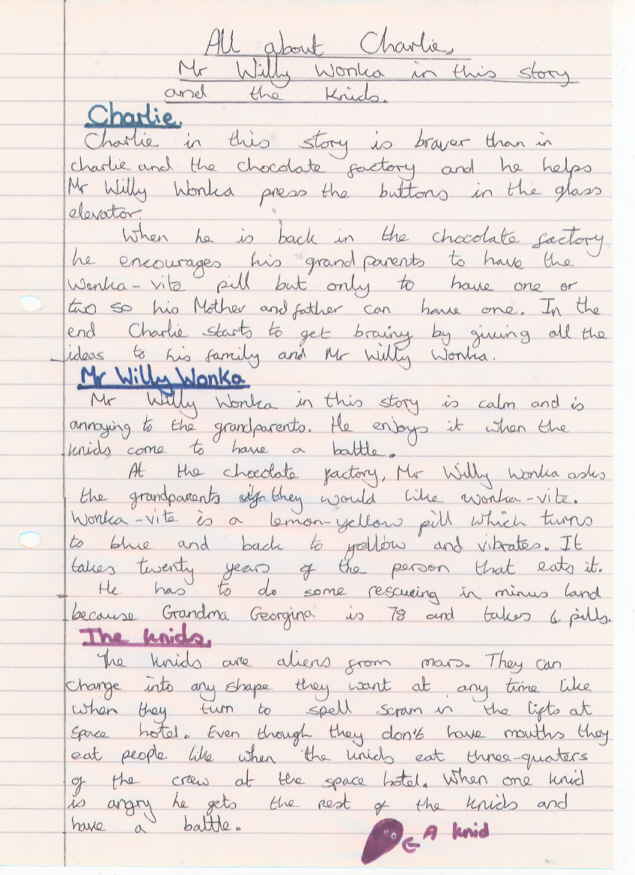 All about Charlie,
Mr Willy Wonka in this story
and the Knids.
Charlie
Charlie in this story is braver than in
charlie and the chocolate factory and he helps
Mr Willy Wonka press the buttons in the glass
elevator.
When he is back in the chocolate factory
he encourages his grandparents to have the
Wonka-vite pill but only to have one or
two so his Mother and father can have one. In the
end Charlie starts to get brainy by giving all the
ideas to his family and Mr Willy Wonka.
Mr Willy Wonka
Mr Willy Wonka in this story is calm and is
annoying to the grandparents. He enjoys it when the
knids come to have a battle.
At the chocolate factory, Mr Willy Wonka asks
the grandparents if they would like wonka-vite.
Wonka-vite is a lemon-yellow pill which turns
to blue and back to yellow and vibrates. It
takes twenty years of the person that eats it.
He has to do some rescueing in minus land
because Grandma Georgina is 78 and takes 6 pills.
The knids
The knids are aliens from mars. They can
change into any shape they want at any time like
when they turn to spell scram in the lifts at
space hotel. Even though they don't have mouths they
eat people like when the knids eat three-quaters
of the crew at the space hotel. When one knid
is angry he gets the rest of the knids and
have a battle.
A knid